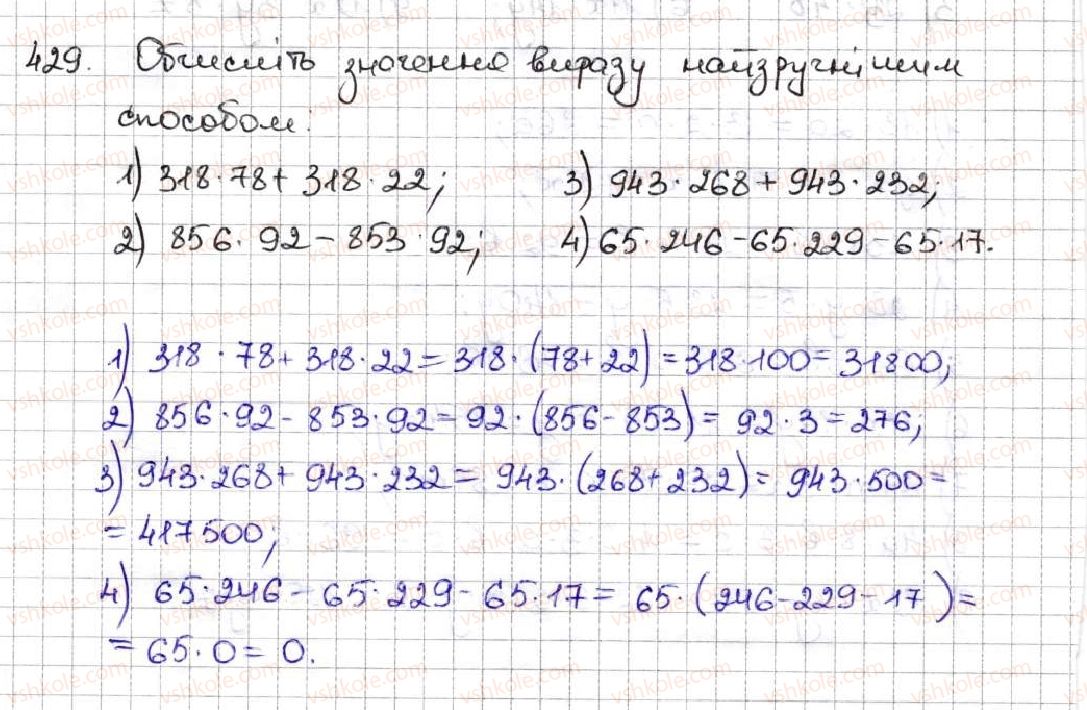 429. Обчисліть значення виразу найзручнішим
способом:
1) 318·78+318·22; 3) 943·268+943·232;
2) 856·92-853·92; 4) 65·246-65·229-65·17.
1) 318·78+318·22=318·(78+22)=318·100=31800;
2) 856·92-853·92=92·(856-853)=92·3=276;
3) 943·268+943·232=943·(268+232)=943·500=
=417500;
4) 65·246-65·229-65·17=65·(246-229-17)=
=65·0=0.